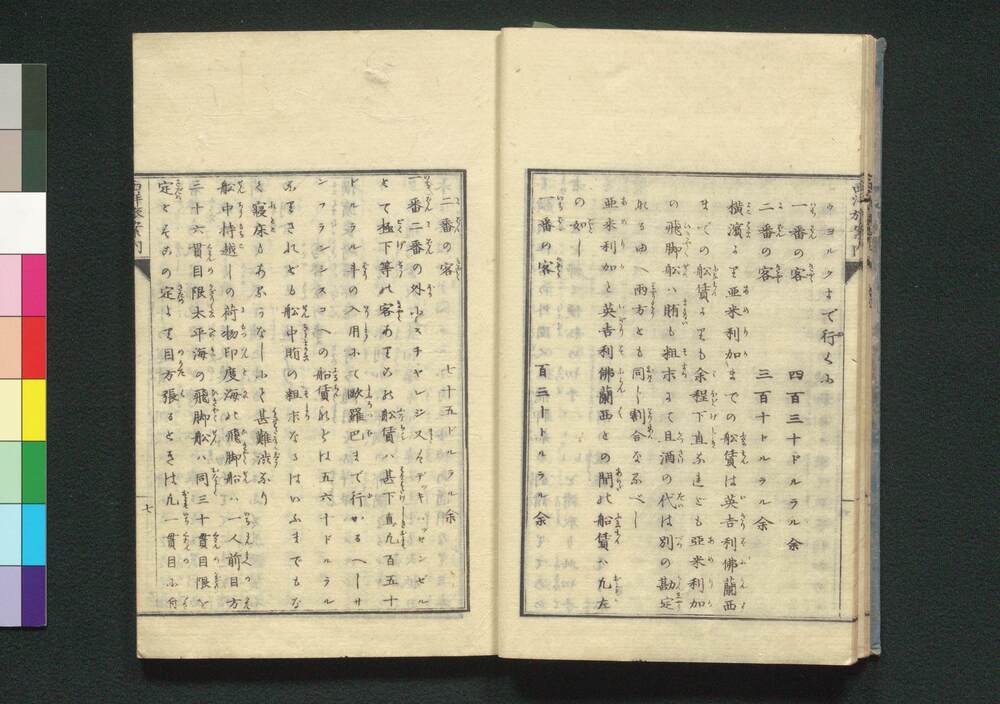 ウヨルクまで行くに
一番の客　四百三十ドルラル余
二番の客　三百十ドルラル余
横濱より亜米利加までの船賃は英吉利佛蘭西
までの船賃よりも余程下直なれども亜米利加
の飛脚船ハ賄も粗末にて且酒の代は別の勘定
なるゆへ両方とも同し割合なるべし
亜米利加と英吉利佛蘭西との間の船賃ハ凡左
の如し
一番の客　百三十ドルラル余
二番の客　七十五ドルラル余
一番二番の外にスチヤレジ又はデッキパッセンゼル
とて極下等の客あり其船賃ハ甚下直凡百五十
ドルラル斗の入用にて歐羅巴まで行かるへしサ
ンフランシスコへの船賃なとは五六十ドルラル
なりされとも船中賄の粗末なるはいふまでもな
く寝床もあるかなしにて甚難渋なり
船中持越しの荷物印度海の飛脚船ハ一人前目方
三十六貫目限太平海の飛脚船ハ同三十貫目限を
定とすこの定より目方張るときは凡一貫目に付
西洋旅案内
七